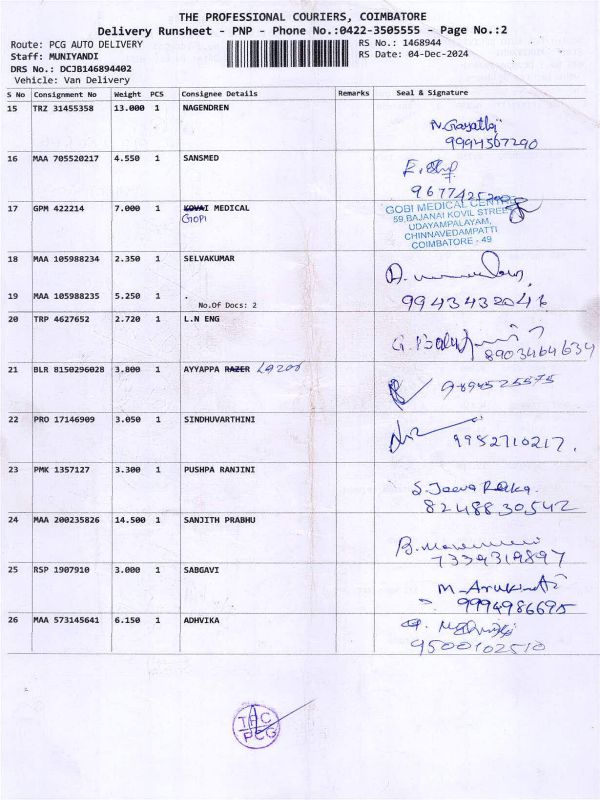 THE PROFESSIONAL COURIERS, COIMBATORE
Delivery Runsheet - PNP - Phone No.:0422-3505555 - Page No.:2
Route: PCG AUTO DELIVERY RS No.: 1468944
Staff: MUNIYANDI RS Date: 04-Dec-2024
DRS No.: DCJB146894402
Vehicle: Van Delivery
S No Consignment No Weight PCS Consignee Details Remarks Seal & Signature
15 TRZ 31455358 13.000 1 NAGENDREN
N. Gayathri
9994567290
16 MAA 705520217 4.550 1 SANSMED
17 GPM 422214 7.000 1 KOVAI MEDICAL
GOPI
GOBI MEDICAL CENTRE
59, BAJANAI KOVIL STREET
UDAYAMPALAYAM,
CHINNAVEDAMPATTI
COIMBATORE - 49
18 MAA 105988234 2.350 1 SELVAKUMAR
19 MAA 105988235 5.250 1 .
No.Of Docs: 2
9943432046
20 TRP 4627652 2.720 1 L.N ENG
8903464634
21 BLR 8150296028 3.800 1 AYYAPPA RAZER
9894525575
22 PRO 17146909 3.050 1 SINDHUVARTHINI
9952710217.
23 PMK 1357127 3.300 1 PUSHPA RANJINI
S. Jeeva Reka.
8248830542
24 MAA 200235826 14.500 1 SANJITH PRABHU
7339319897
25 RSP 1907910 3.000 1 SABGAVI
9994986695
26 MAA 573145641 6.150 1 ADHVIKA
9500102510
TPC
PCG